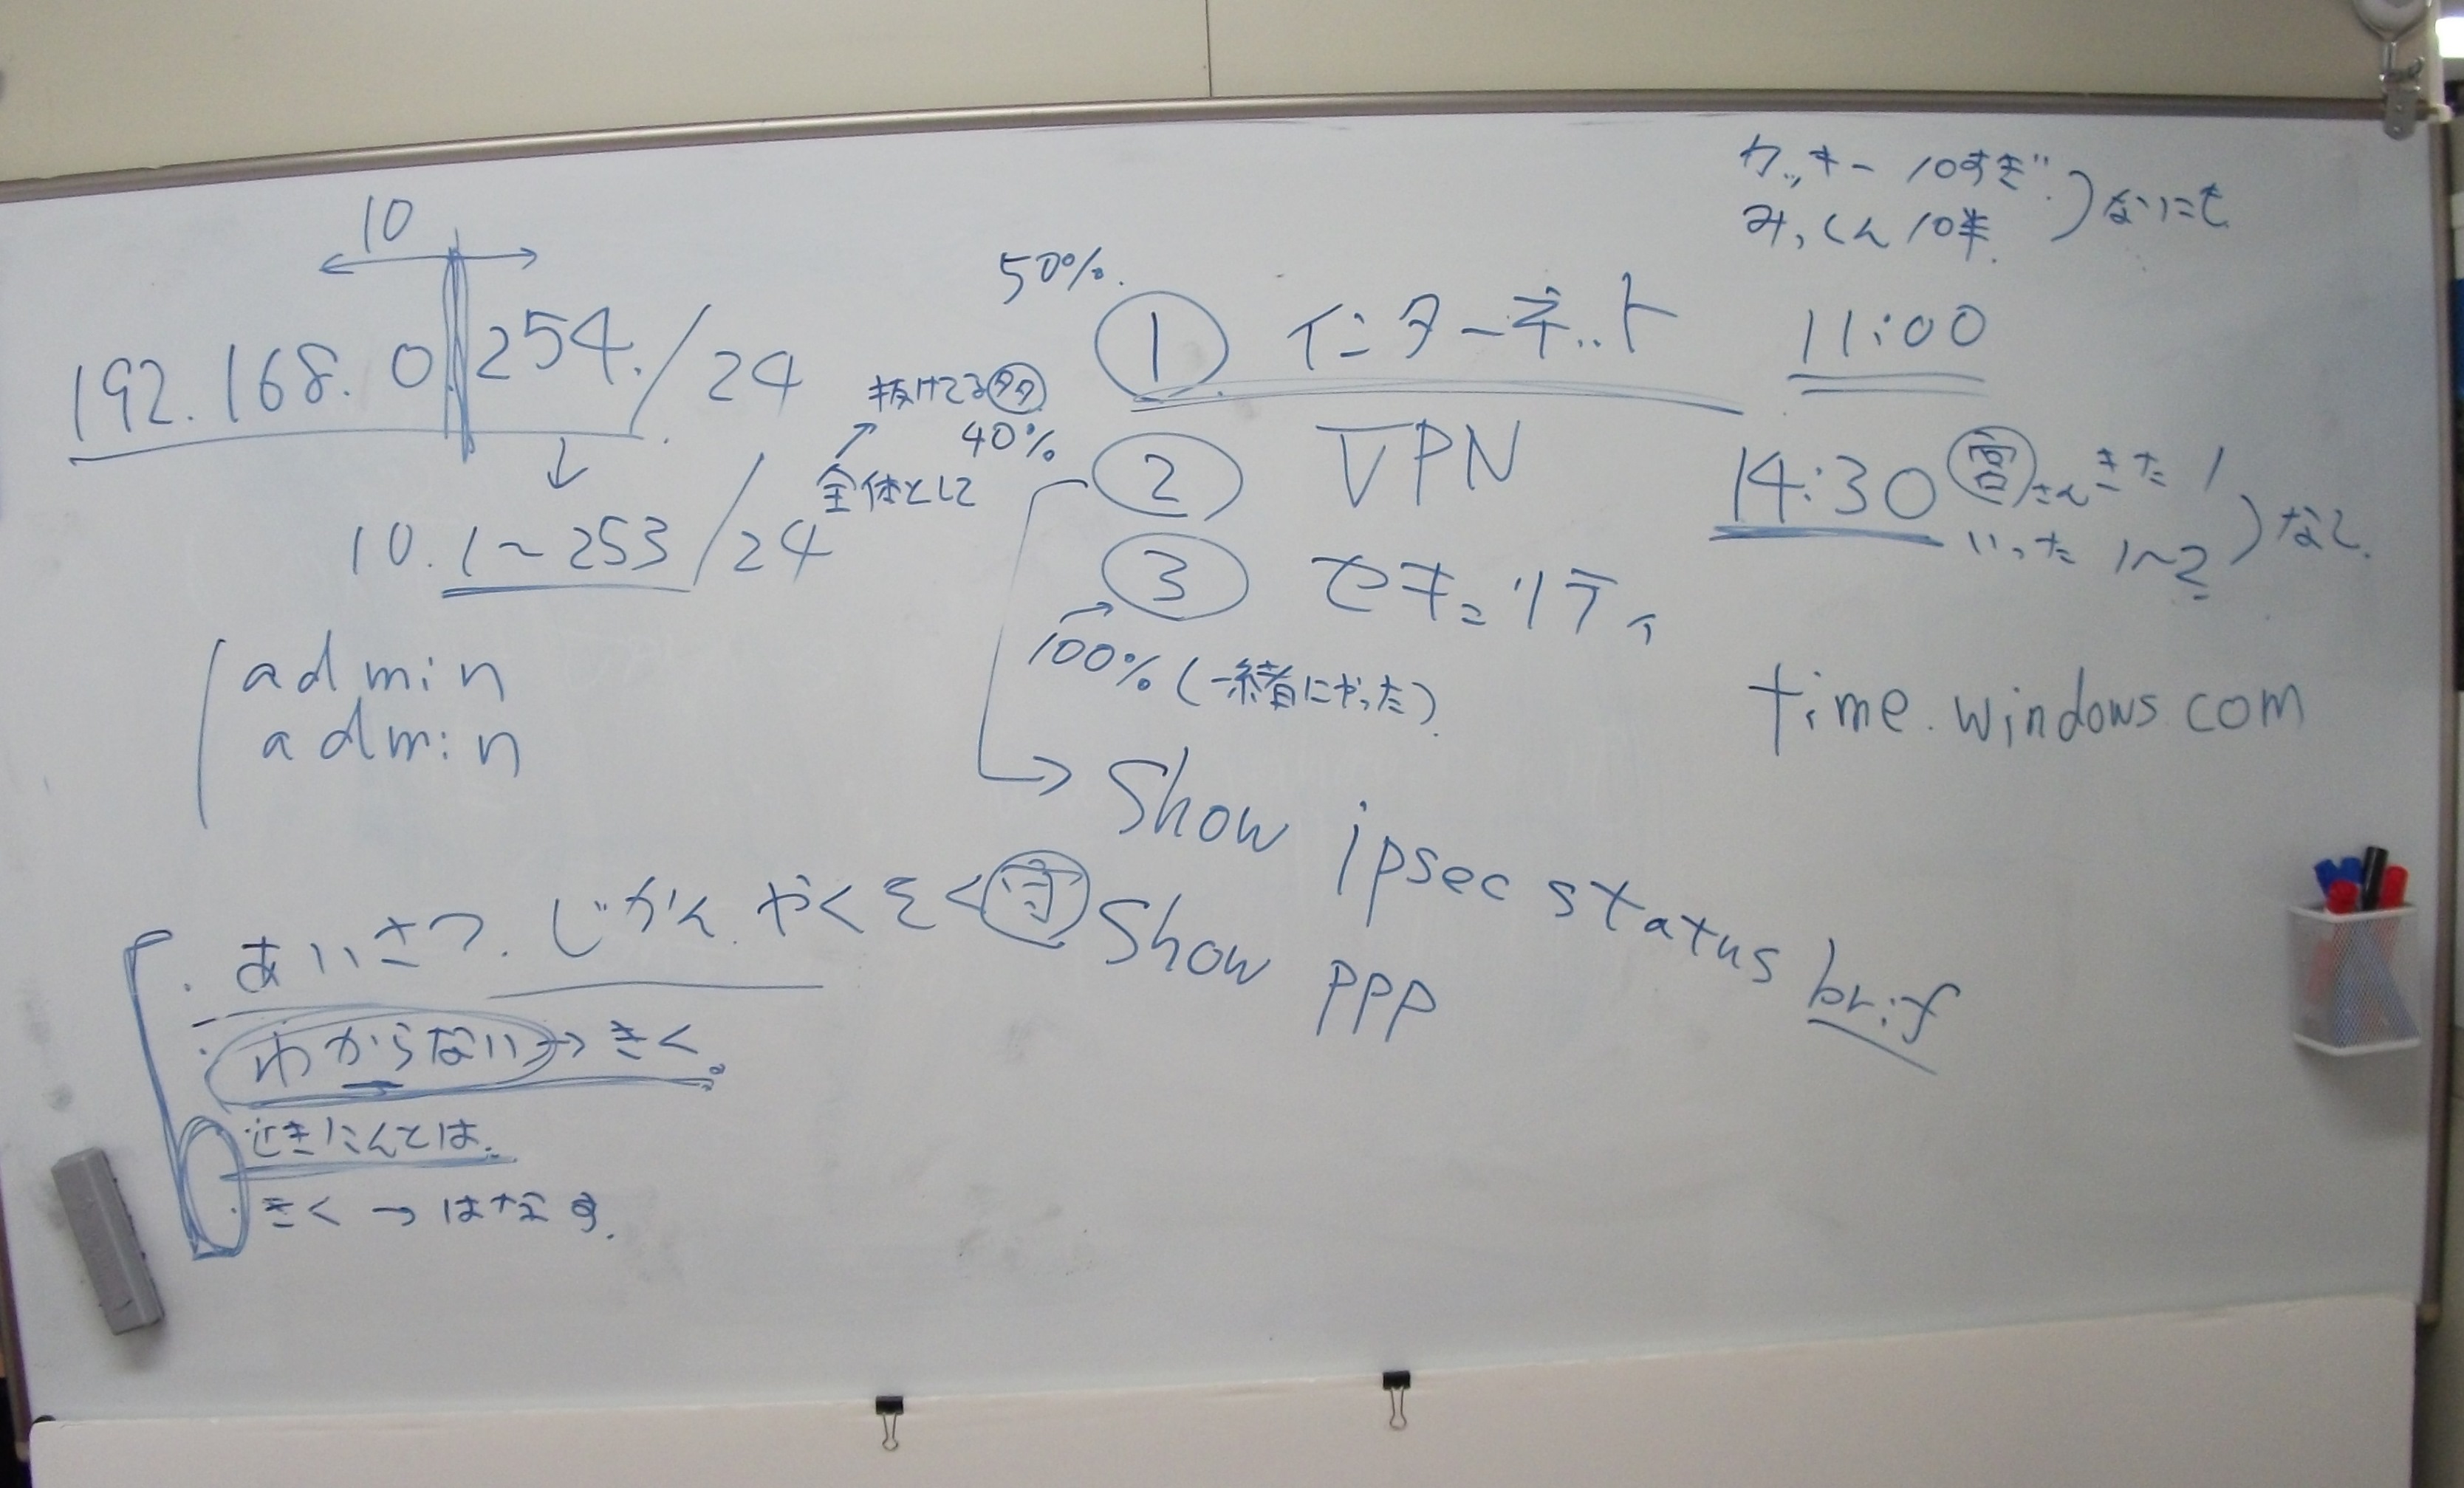 10
192.168.0.254./24
10.1~253/24
admin
admin
あいさつ.じかん.やくそく守
わからない→きく。
せきにんとは.
きく→はなす.
50%.
① インターネット
抜けてる多
40%
全体として
② VPN
③ セキュリティ
100%(一緒にやった)
Show ipsec status brif
Show PPP
カッキー 10すぎ
みっくん 10半
なにも
11:00
14:30 客さんきた 1
いった 1~2
なし.
time.windows.com